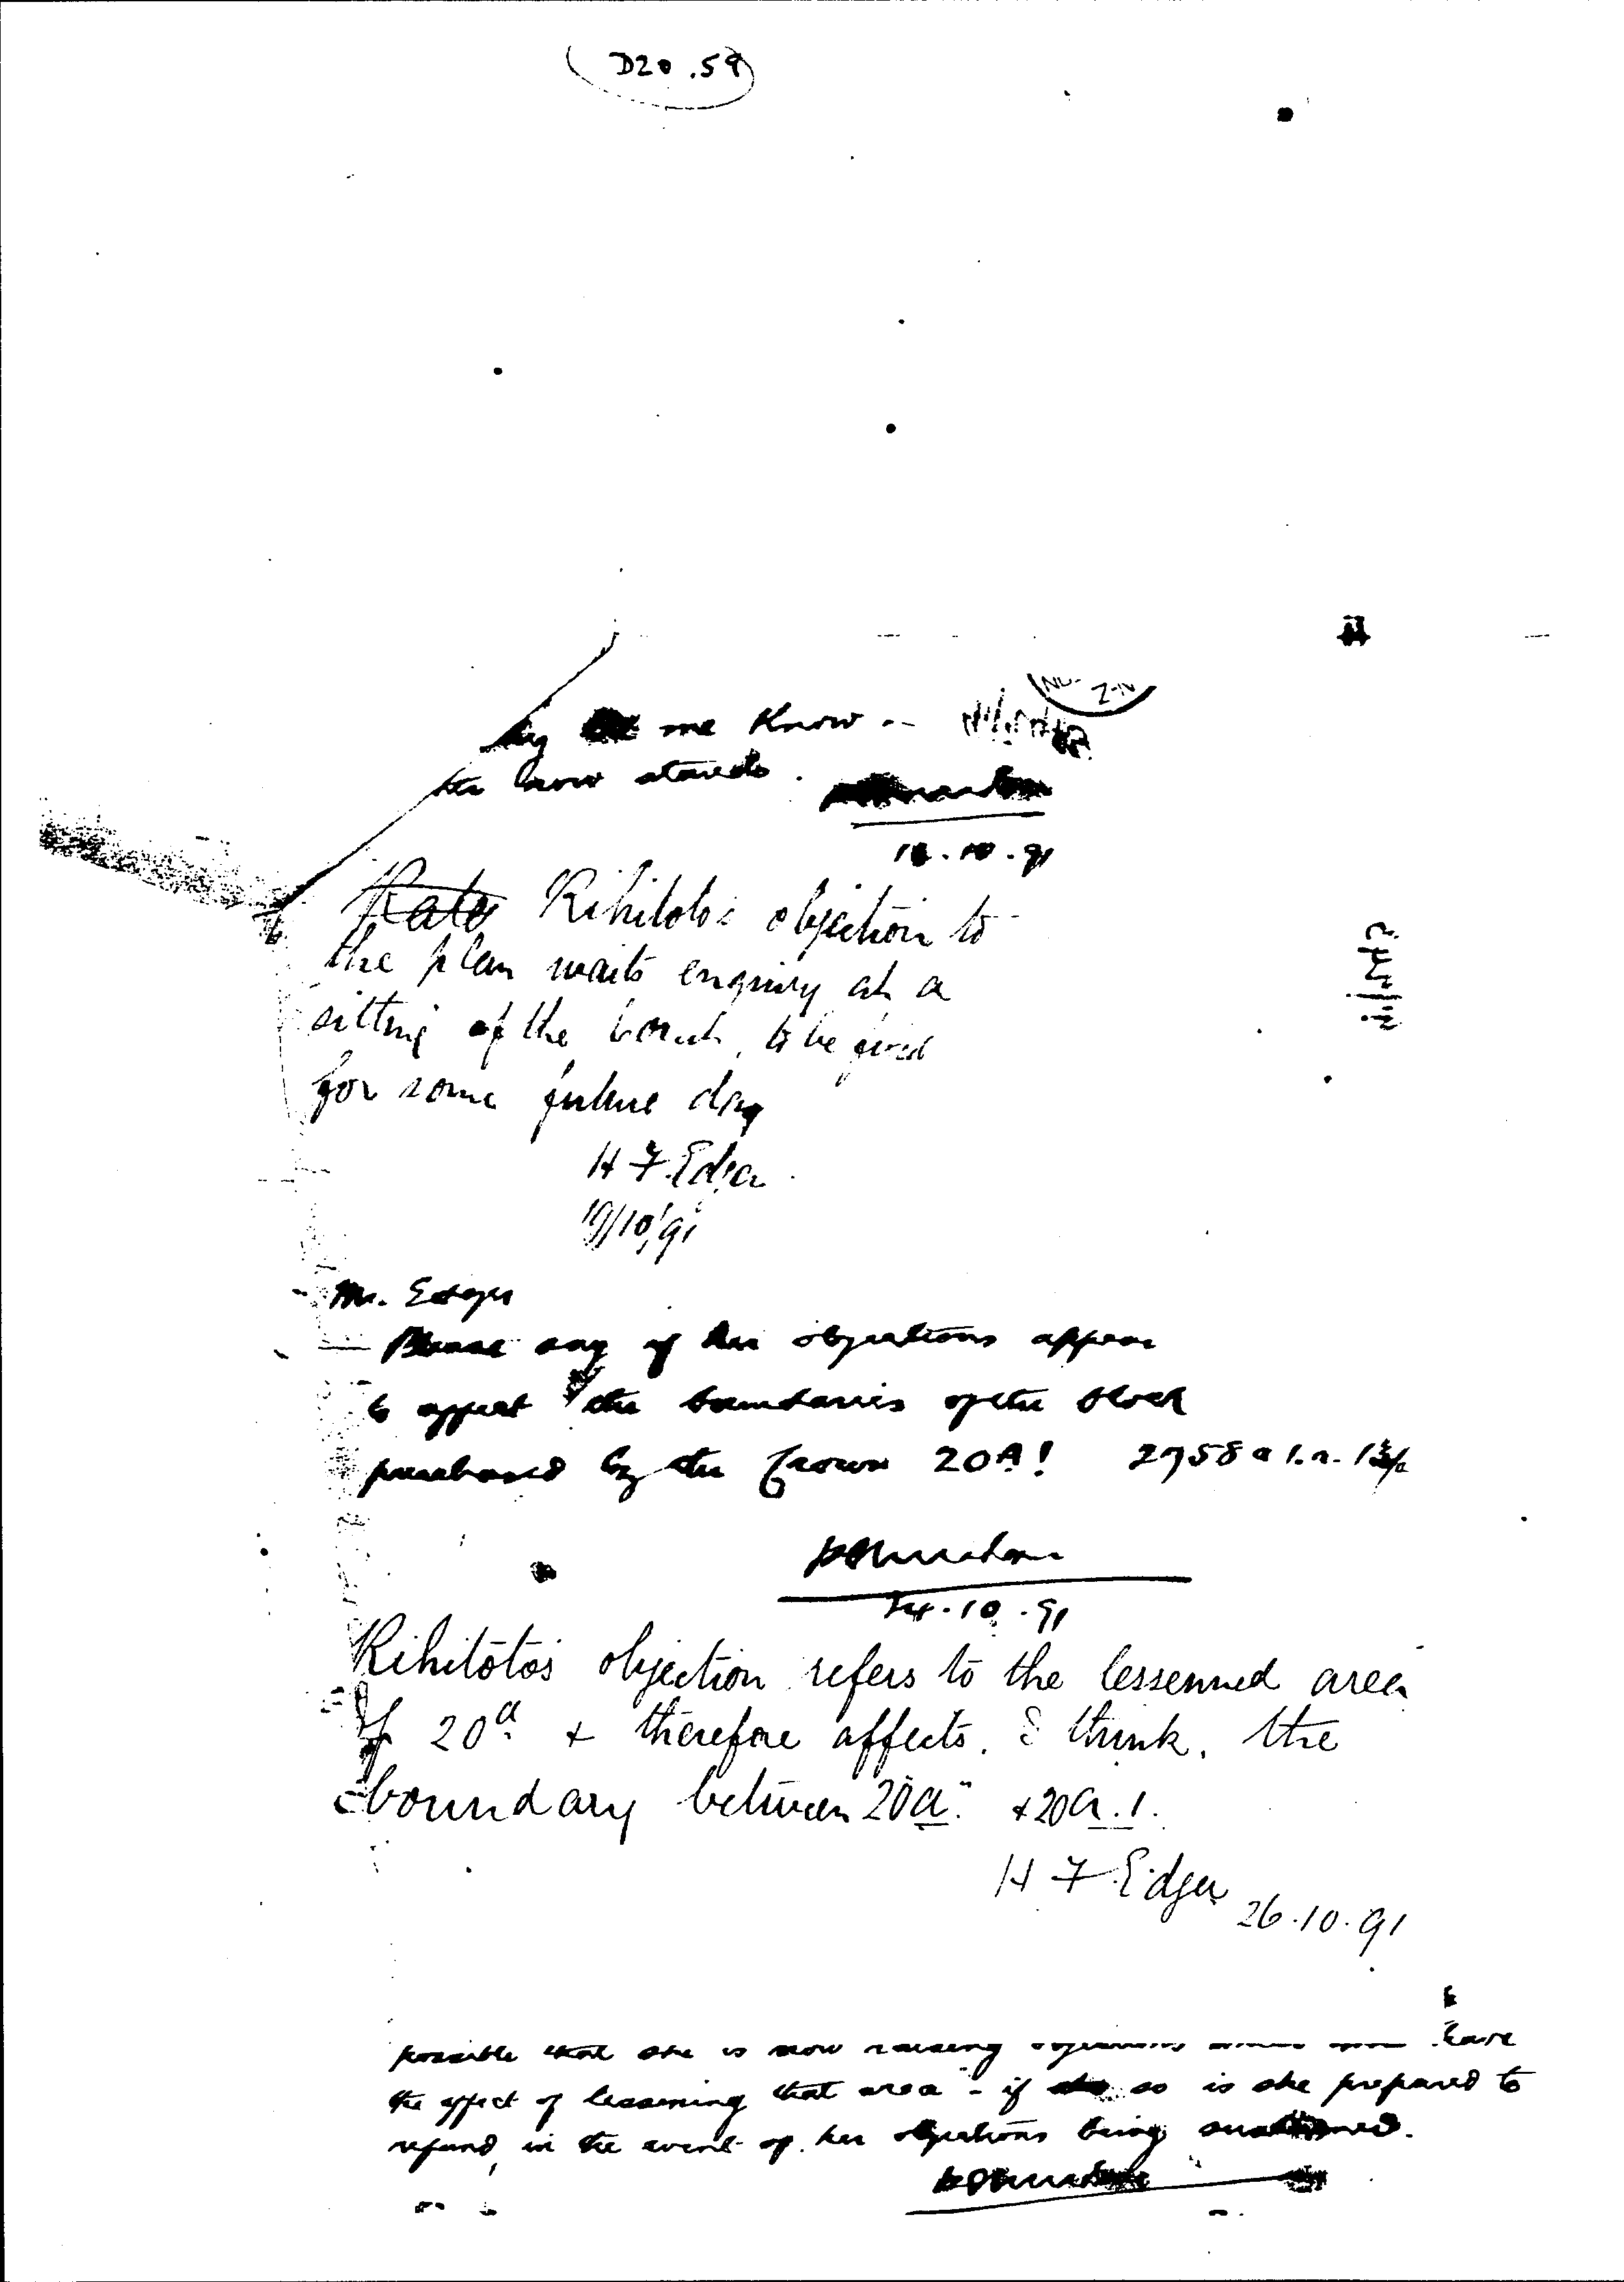 D20.59
me know
how stands.
10.91
Rihitotos objection to
the plan waits enquiry at a
sitting of the Court, to be fixed
for some future day
H F Edger
19/10/91
Mr. Edger
Please say if her objections appear
to affect the boundaries of the block
purchased by the Crown 20A!
24.10.91
Rihitotos objection refers to the lessenned area
of 20a & therefore affects, I think, the
boundary between 20a. & 20a.1.
H F Edger
26.10.91
possible that she is now raising have
the effect of lessening that area - if so is she prepared to
refund, in the event of her objections being sustained.